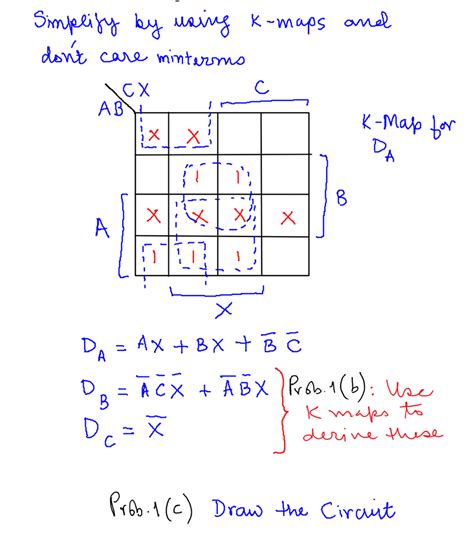 Simplify by using K-maps and
don't care minterms
CX
C
AB
X X
K-Map for
D_A
1 1
B
A
X X X X
1 1 1
X
D_A = AX + BX + B̅ C̅
D_B = A̅ C̅ X̅ + A̅ B̅ X
Prob.1(b): Use
K maps to
derive these
D_C = X̅
Prob.1(c) Draw the Circuit